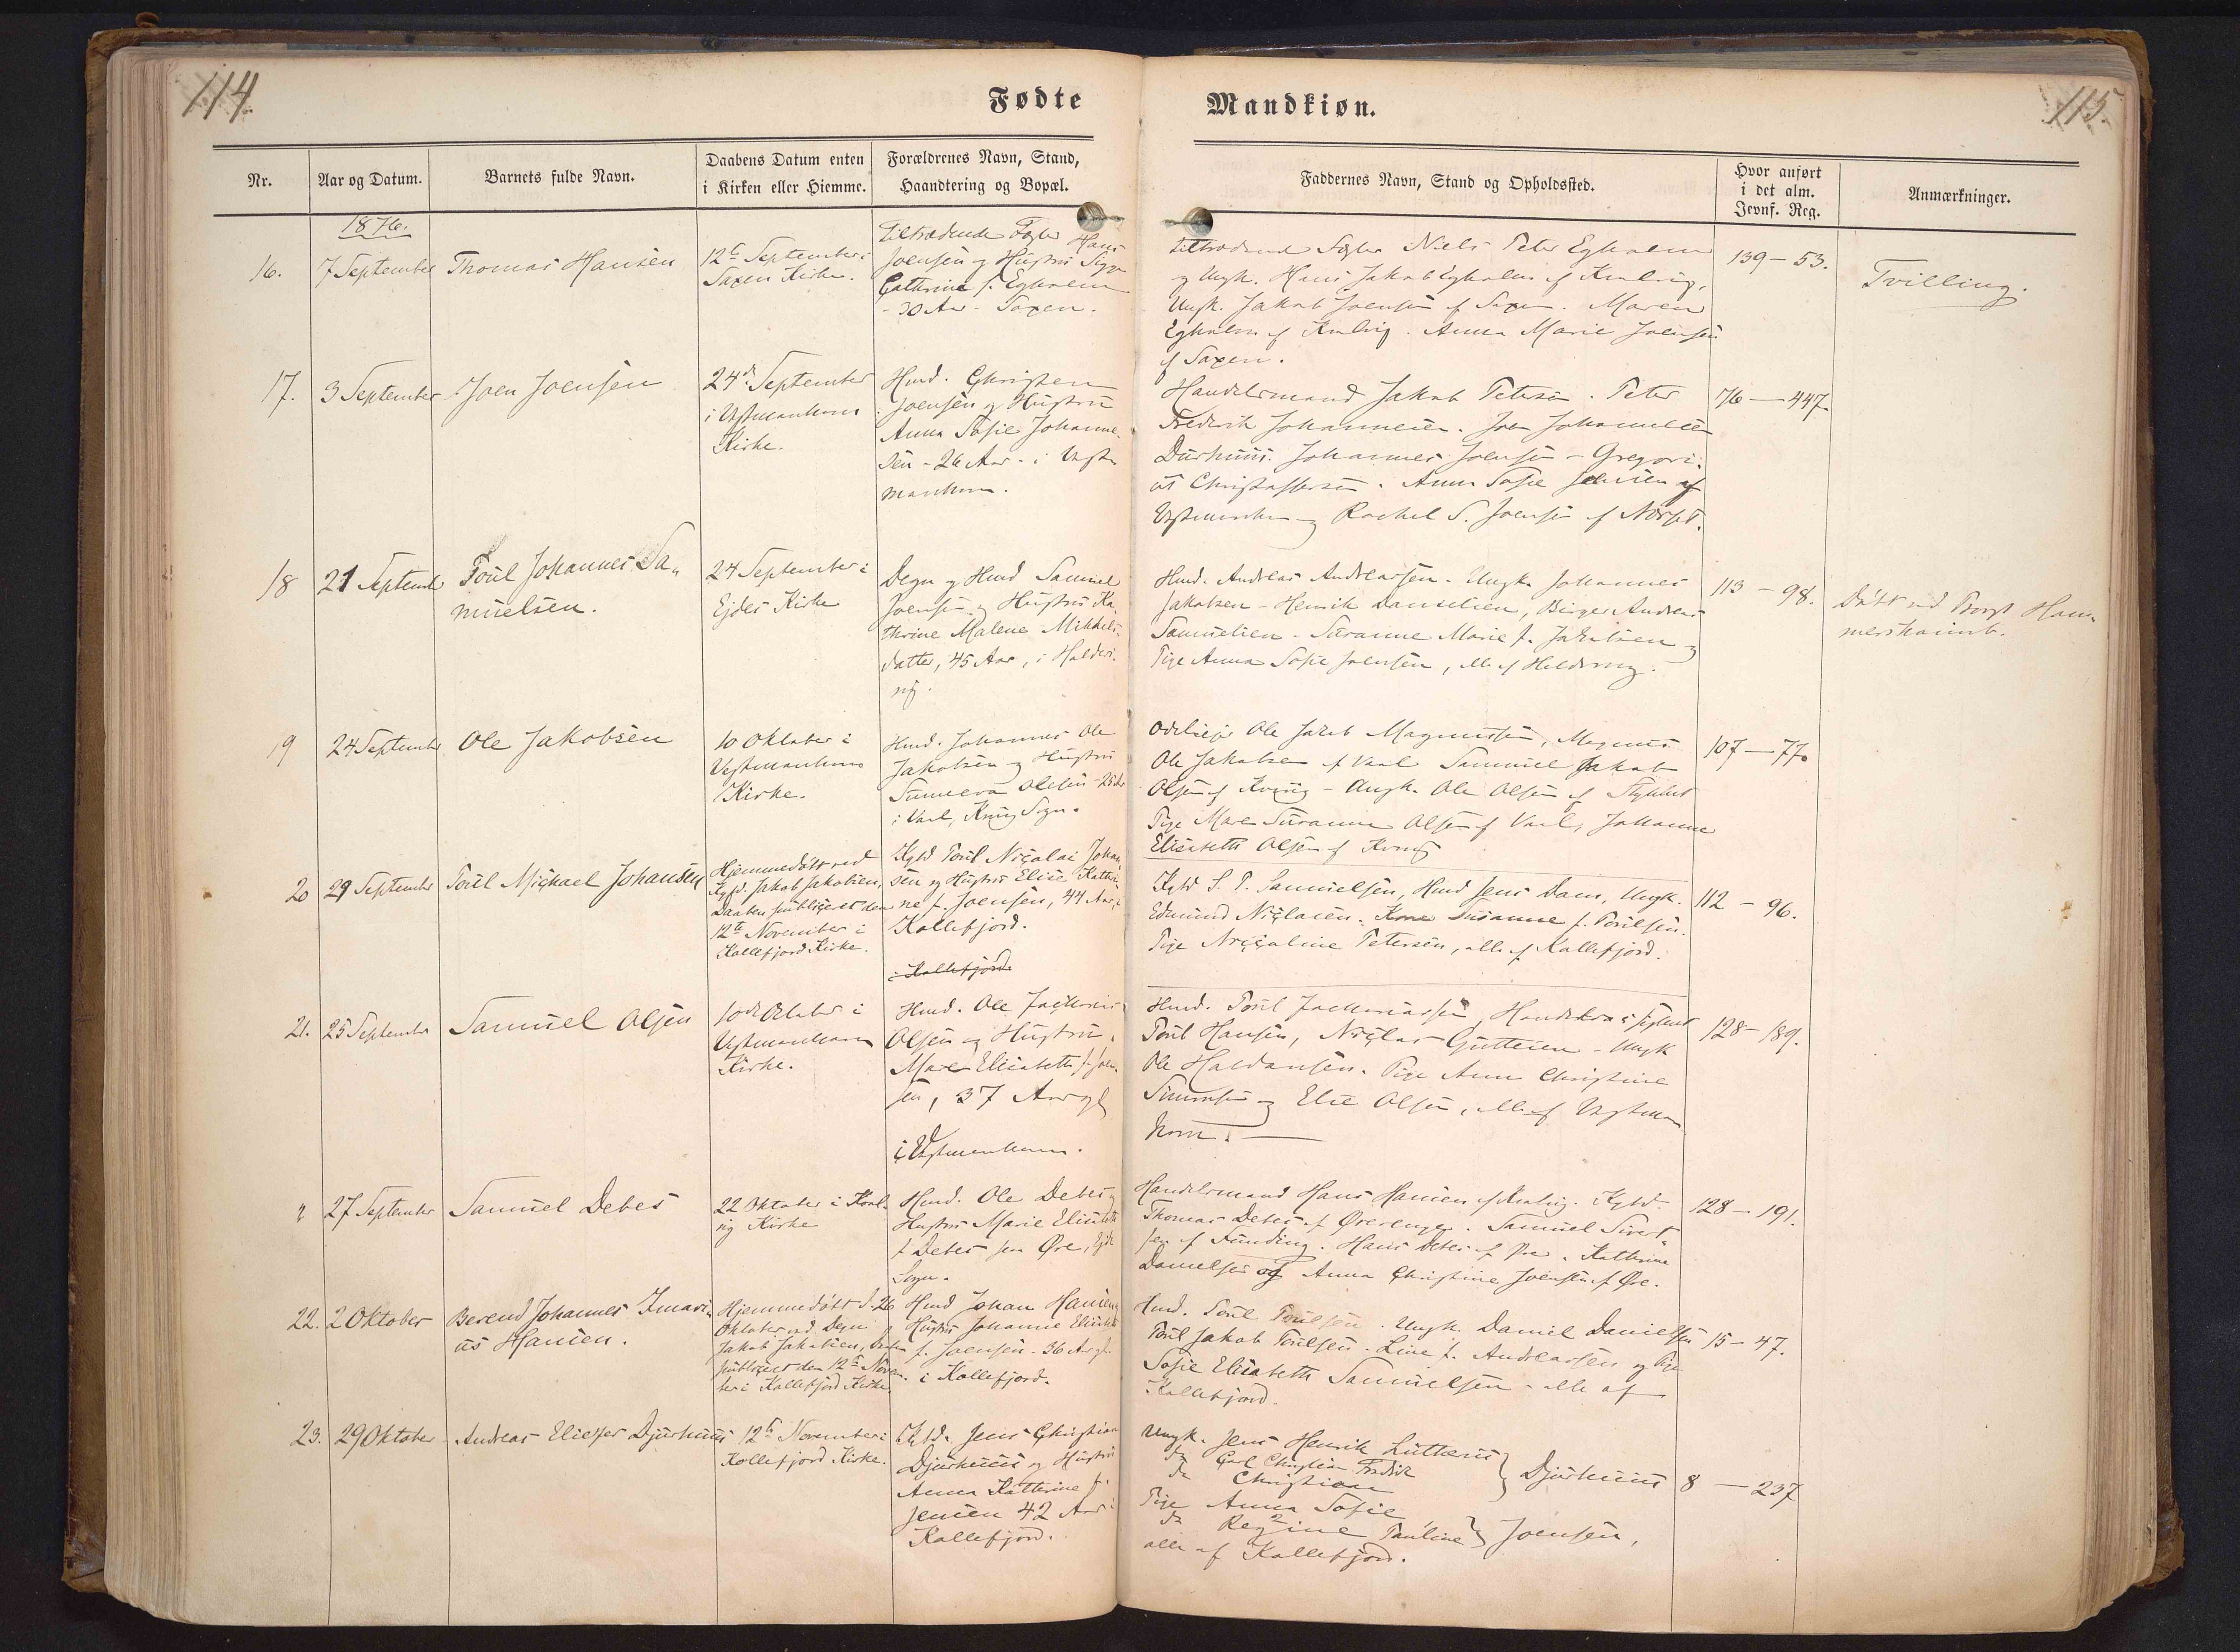 114.
115.
Fødte
Mandkiøn.
Nr.
Aar og Datum.
Barnets fulde Navn.
Daabens Datum enten
i Kirken eller Hiemme.
Forældrenes Navn, Stand,
Haandtering og Bopæl.
Faddernes Navn, Stand og Opholdssted.
Hvor anført
i det alm.
Jevnf. Reg.
Anmærkninger.
1876.
16.
7 September
Thomas Hansen
12te September i
Saxen Kirke.
tiltrædende Fæster Hans
Joensen og Hustru Sigga
Cathrine f. Egholm
- 30 Aar - Saxen.
tiltrædende Fæster Niels Peter Egholm
og Ungk. Hans Jakob Egholm af Kvalvig,
Ungk. Jakob Joensen af Saxen. Maren
Egholm af Kvalvig. Anna Marie Joensen
af Saxen.
139 - 53.
Tvilling.
17.
3 September
Joen Joensen
24de September
i Vestmanhavn
Kirke.
Hmd. Christen
Joensen og Hustru
Anna Sofie Johanne-
sen - 26 Aar - i Vest-
manhavn.
Handelsmand Jakob Petersen. Peter
Fredrik Johannesen. Joen Johannesen
Durhuus. Johannes Joensen - Gregori-
us Christoffersen. Anna Sofie Jensen af
Vestmanhn og Rachel S. Joensen af
76 - 447.
18
21 September
Poul Johannes Sa-
muelsen.
24 September i
Ejdes Kirke
Degn og Hmd Samuel
Joensen og Hustru Ka-
thrine Malene Mikkels-
datter, 45 Aar, i Haldors-
vig.
Hmd. Andreas Andreassen. Ungk. Johannes
Jakobsen - Henrik Danielsen, Birger Andreas
Samuelsen. Susanne Marie f. Jakobsen og
Pige Anna Sofie Joensen, alle af Haldersvig.
113 - 98.
Døbt ved Provst Ham-
mershaimb.
19
24 September
Ole Jakobsen
10 Oktober i
Vestmanhavns
Kirke.
Hmd. Johannes Ole
Jakobsen og Hustru
Sunneva Olesen - 25 Aar
i Vaal, Sogn.
Ole Jakob Magnussen, Magnus
Ole Jakobsen af Vaal Samuel Jakob
Olsen af Kvivig - Ungk. Ole Olsen af Stykket
Pige Mare Susanne Olsen af Vaal, Johanne
Elisabeth Olsen af Kvivig
107 - 77.
20
29 September
Poul Michael Johansen
Hjemmedøbt ved
Kgsb. Jakob Jakobsen,
Daaben publiceret den
12te November i
Kollefjord Kirke.
Kgsb Poul Nicolai Johan-
sen og Hustru Elise Kathri-
ne f. Joensen, 44 Aar, i
Kollefjord.
i Kollefjord.
Kgsb S. P. Samuelsen, Hmd Jens Dam, Ungk.
Edmund Niclasen. Kone Susanne f. Poulsen.
Pige Nicoline Petersen, alle af Kollefjord.
112 - 96.
21.
25 September
Samuel Olsen
10de Oktober i
Vestmanhavn
Kirke.
Hmd. Ole Zacharias
Olsen og Hustru
Mare Elisabeth f. Joen-
sen, 37 Aar gl
i Vestmanhavn.
Hmd. Poul Zachariassen,
Poul Hansen, Niclas Guttesen - Ungk
Ole Haldansen. Pige Anne Christine
Simonsen og Else Olsen, alle af Vestman-
havn.
128 - 189.
27 September
Samuel Debes
22 Oktober i Kval-
vig Kirke
Hmd. Ole Debes og
Hustru Marie Elisabeth
f. Debes paa Øre, Ejde
Sogn.
Handelsmand Hans Hansen af Kvalvig. Kgsb.
Thomas Debes af Øverenge. Samuel Sivert-
sen af Funding. Hans Debes af Øre. Kathrine
Danielsen og Anna Christine Joensen af Øre.
128 - 191.
22.
2 Oktober
Berend Johannes Imari-
us Hansen.
Hjemmedøbt d. 26
Oktober ved Degn
Jakob Jakobsen, Daaben
publiceret den 12te Novem-
ber i Kollefjord Kirke.
Hmd Johan Hansen og
Hustru Johanne Elisabeth
f. Joensen - 36 Aar gl.
i Kollefjord.
Hmd. Poul Poulsen. Ungk. Daniel Danielsen
Poul Jakob Poulsen. Line f. Andreassen og Pige
Sofie Elisabeth Samuelsen - alle af
Kollefjord.
15 - 47.
23.
29 Oktober
Andreas Elieser Djurhuus
12te November i
Kollefjord Kirke.
Kgsb. Jens Christian
Djurhuus og Hustru
Anna Kathrine f.
Jensen 42 Aar i
Kollefjord.
Ungk. Jens Henrik Lutherus
do Carl Christian Fredrik
do Christian
Djurhuus
Pige Anna Sofie
do Regine Pauline
Joensen,
alle af Kollefjord.
8 - 237